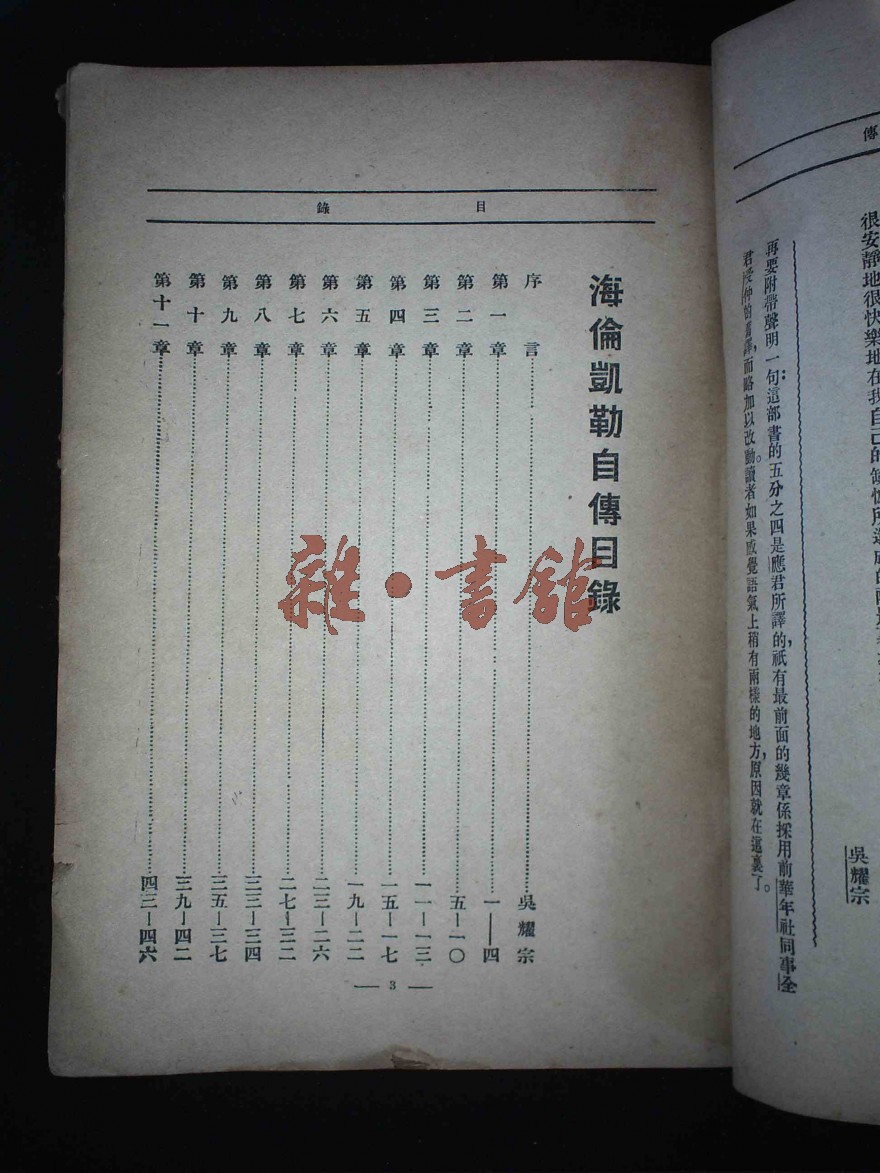 傳
很安靜地很快樂地在我自己的
吳耀宗
再要附帶聲明一句：這部書的五分之四是應君所譯的，祇有最前面的幾章係採用前華年社同事全
君受仲的舊譯，而略加以改動。讀者如果感覺語氣上稍有兩樣的地方，原因就在這裏了。
目錄
海倫凱勒自傳目錄
序言……吳耀宗
第一章……一—四
第二章……五—一〇
第三章……一一—一三
第四章……一五—一七
第五章……一九—二二
第六章……二三—二六
第七章……二七—三二
第八章……三三—三四
第九章……三五—三七
第十章……三九—四二
第十一章……四三—四六
— 3 —
雜·書館